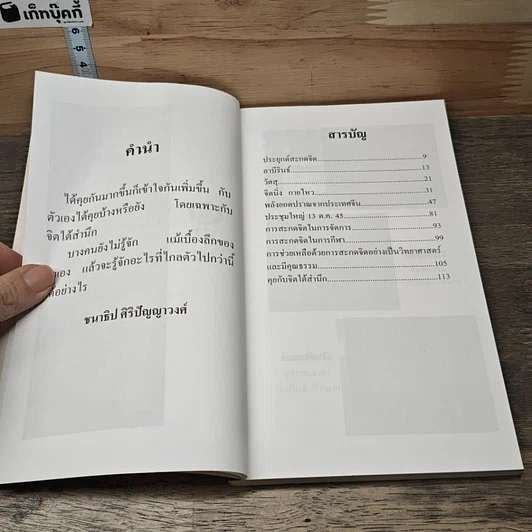 เก็ทบุ๊คกี้
6
5
4
คำนำ
ได้คุยกันมากขึ้นก็เข้าใจกันเพิ่มขึ้น กับ
ตัวเองได้คุยบ้างหรือยัง โดยเฉพาะกับ
จิตใต้สำนึก
บางคนยังไม่รู้จัก แม้เบื้องลึกของ
แล้วจะรู้จักอะไรที่ไกลตัวไปกว่านี้
ชนาธิป ศิริปัญญาวงศ์
สารบัญ
ประยุกต์สะกดจิต 9
ลาบีรินธ์ 13
วัตสุ 21
จิตนิ่ง กายไหว 31
พลังยอดปราณจากประเทศจีน 47
ประชุมใหญ่ 13 ต.ค. 45 81
การสะกดจิตในการจัดการ 93
การสะกดจิตในการกีฬา 99
การช่วยเหลือด้วยการสะกดจิตอย่างเป็นวิทยาศาสตร์
และมีคุณธรรม 105
คุยกับจิตใต้สำนึก 113